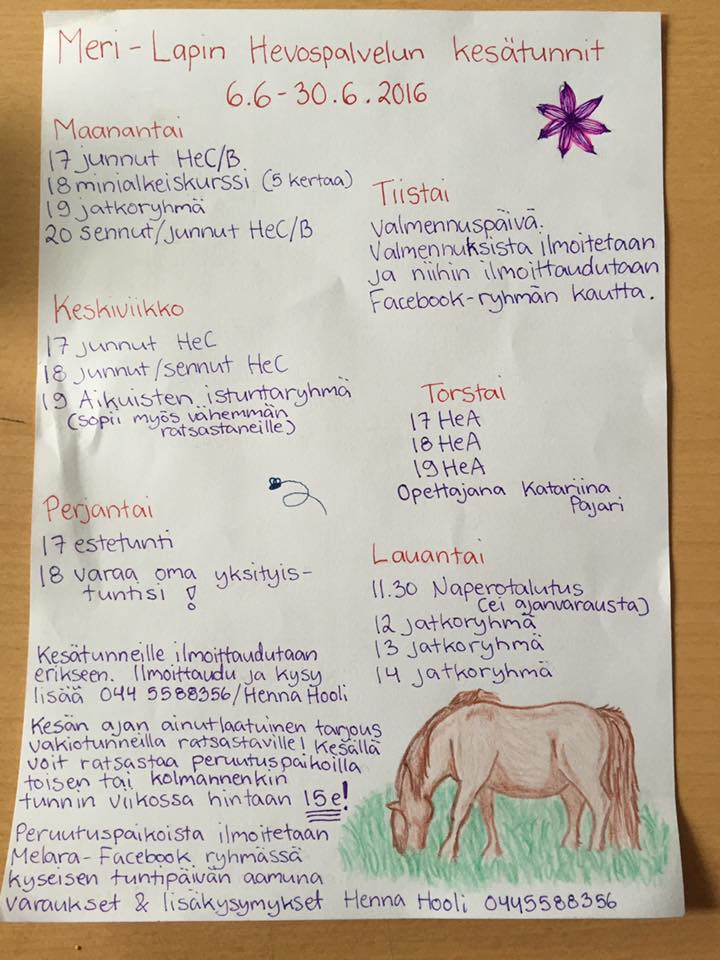 Meri-Lapin Hevospalvelun kesätunnit
6.6-30.6.2016
Maanantai
17 junnut HeC/B
18 minialkeiskurssi (5 kertaa)
19 jatkoryhmä
20 sennut/junnut HeC/B
Tiistai
Valmennuspäivä.
Valmennuksista ilmoitetaan
ja niihin ilmoittaudutaan
Facebook-ryhmän kautta.
Keskiviikko
17 junnut HeC
18 junnut/sennut HeC
19 Aikuisten istuntaryhmä
(sopii myös vähemmän
ratsastaneille)
Torstai
17 HeA
18 HeA
19 HeA
Opettajana Katariina
Pajari
Perjantai
17 estetunti
18 varaa oma yksityis-
tuntisi!
Lauantai
11.30 Naperotalutus
(ei ajanvarausta)
12 jatkoryhmä
13 jatkoryhmä
14 jatkoryhmä
Kesätunneille ilmoittaudutaan
erikseen. Ilmoittaudu ja kysy
lisää 044 5588356/Henna Hooli
Kesän ajan ainutlaatuinen tarjous
vakiotunneilla ratsastaville! Kesällä
voit ratsastaa peruutuspaikoilla
toisen tai kolmannenkin
tunnin viikossa hintaan 15e!
Peruutuspaikoista ilmoitetaan
Melara-Facebook ryhmässä
kyseisen tuntipäivän aamuna
varaukset & lisäkysymykset Henna Hooli 0445588356